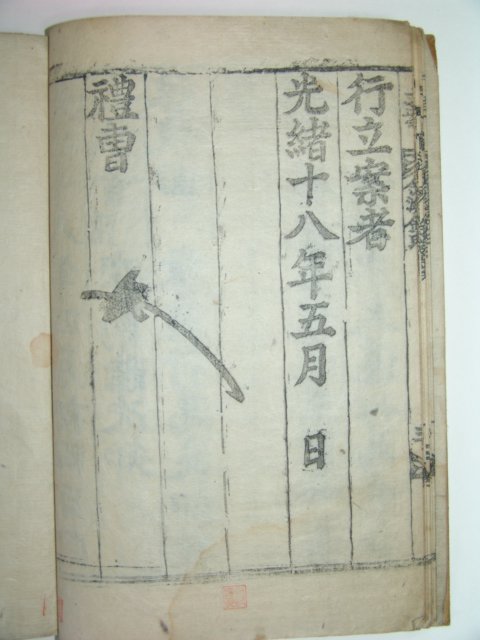 行立案者
光緒十八年五月 日
禮曹